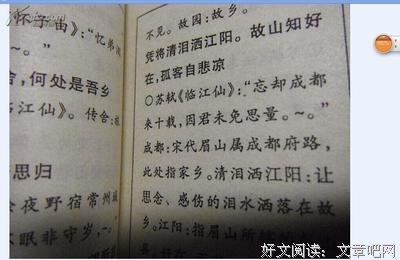 怀子由》:“忆弟泪
舍,何处是吾乡
临江仙》。传舍:
思归
夜野宿常州城
眠非守岁,~。”
不见。故园:故乡。
凭将清泪洒江阳。故山知好
在,孤客自悲凉
○苏轼《临江仙》:“忘却成都
来十载,因君未免思量。~。”
成都:宋代眉山属成都府路,
此处指家乡。清泪洒江阳:让
思念、感伤的泪水洒落在故
乡。江阳:指眉山所辖的
好文阅读:文章吧网